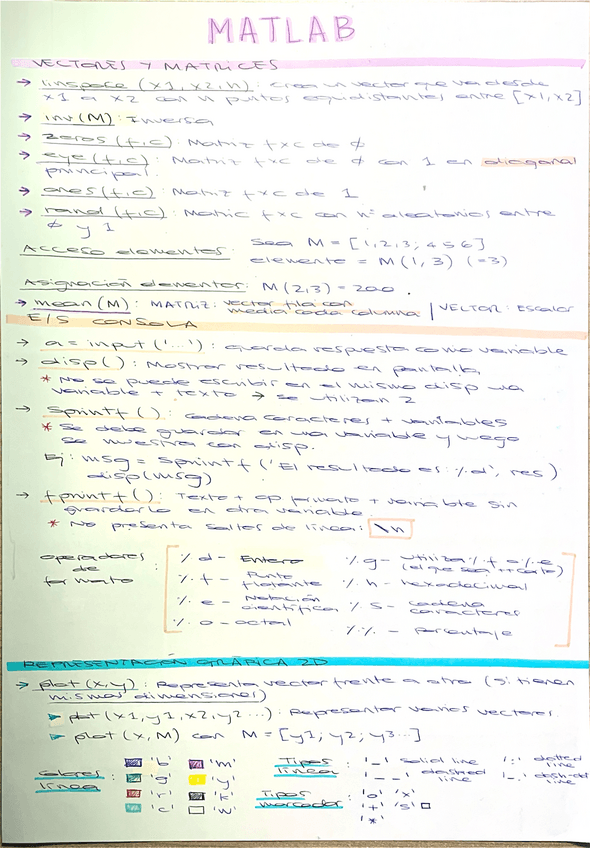 MATLAB
VECTORES Y MATRICES
→ linspace (x1, x2, n): crea un vector que va desde
x1 a x2 con n puntos equidistantes entre [x1, x2]
→ inv(M): Inversa
→ zeros (f,c): Matriz fxc de ∅
→ eye (f,c): Matriz fxc de ∅ con 1 en diagonal
principal.
→ ones (f,c): Matriz fxc de 1
→ rand (f,c): Matriz fxc con nº aleatorios entre
∅ y 1
Acceso elementos: Sea M = [1,2,3; 4 5 6]
elemento = M(1,3) (=3)
Asignación elementos: M(2,3) = 200.
→ mean (M): MATRIZ: vector fila con
media cada columna | VECTOR: Escalar
E/S CONSOLA
→ a = input ('...'): guarda respuesta como variable
→ disp( ): Mostrar resultado en pantalla
* No se puede escribir en el mismo disp una
variable + texto → se utilizan 2
→ Sprintf ( ): cadena caracteres + variables
* Se debe guardar en una variable y luego
se muestra con disp.
Ej: msg = sprintf ('El resultado es: %d', res)
disp(msg)
→ fprintf ( ): Texto + op formato + variable sin
guardarlo en otra variable
* No presenta saltos de línea: \n
operadores
de
formato :
%d - Entero
%f - Punto
flotante
%e - Notación
científica
%o - octal
%g - utiliza %f o %e
(el que sea ++corto)
%h - hexadecimal
%s - cadena
caracteres
%% - porcentaje
REPRESENTACIÓN GRÁFICA 2D
→ plot (x,y): Representa vector frente a otro (si tienen
mismas dimensiones)
▸ plot (x1,y1,x2,y2...): Representar varios vectores.
▸ plot (x, M) con M = [y1; y2; y3...]
Colores
línea :
'b' 'm'
'g' 'y'
'r' 'k'
'c' 'w'
Tipos
línea :
'-' solid line ':' dotted
line
'--' dashed
line '-.' dash-dot
line
Tipos
marcador :
'o' 'x'
'+' 's' □
'*'